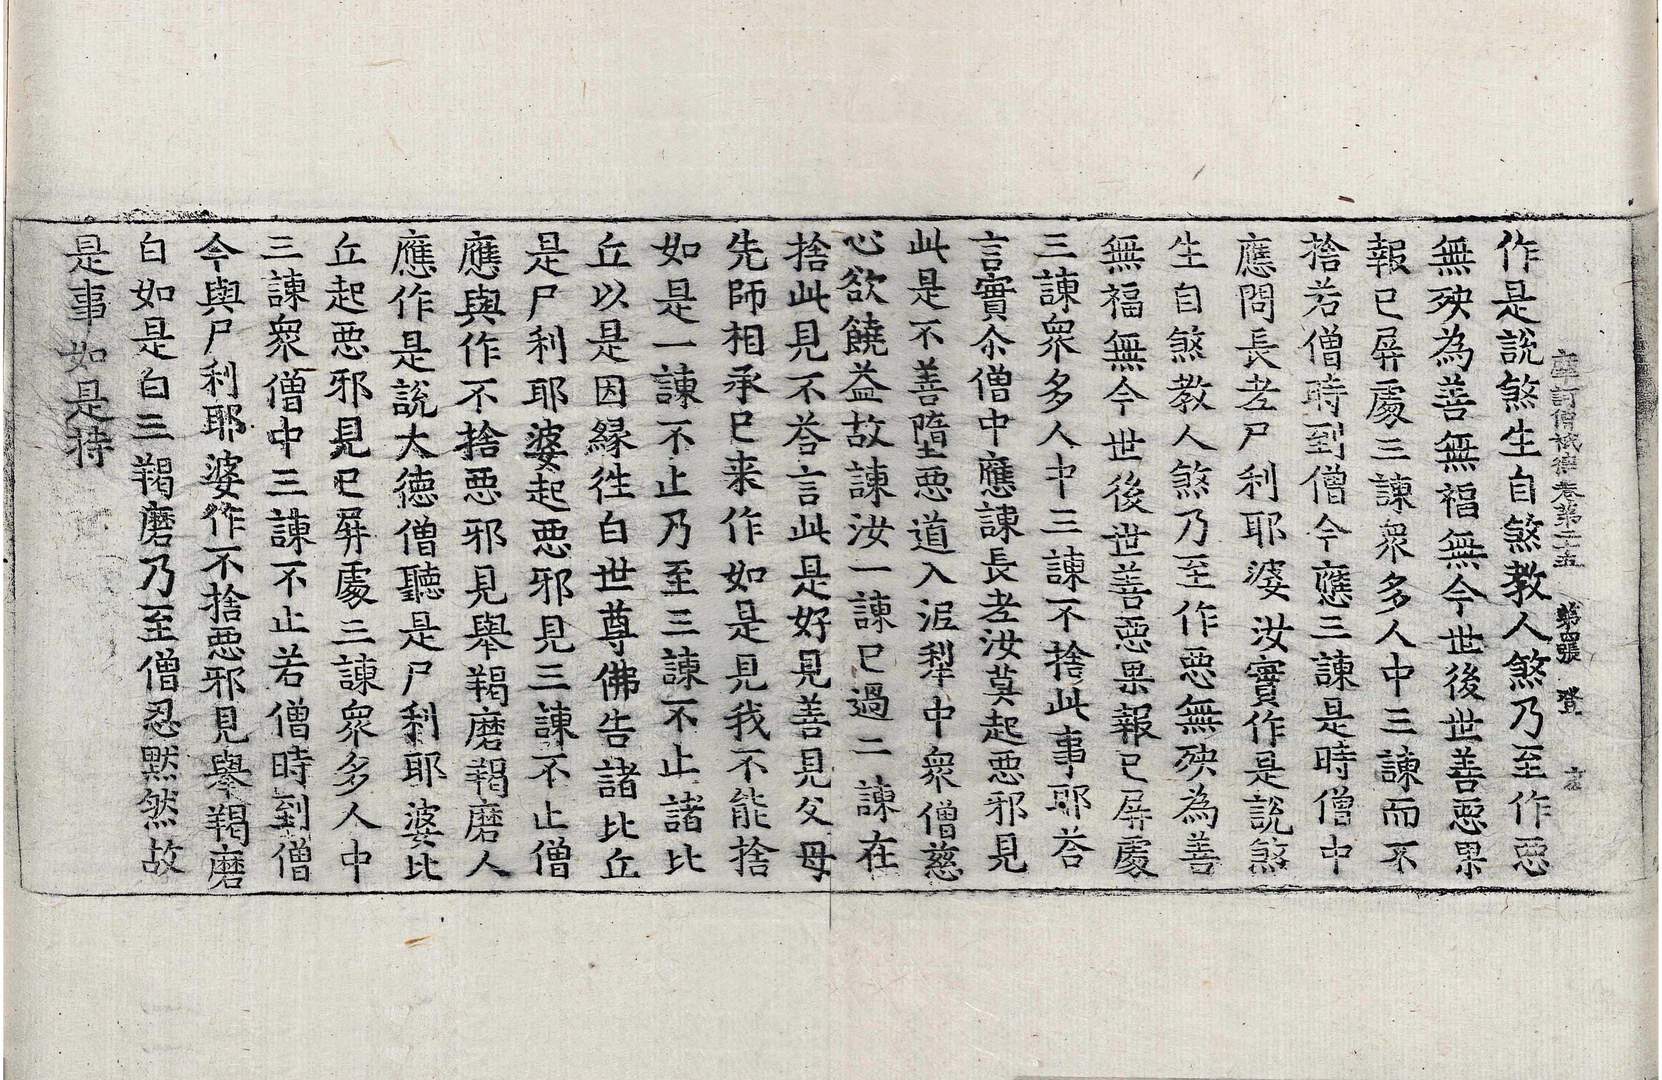 作是說煞生自煞教人煞乃至作惡
無殃為善無福無今世後世善惡果
報已屏處三諫衆多人中三諫而不
捨若僧時到僧今應三諫是時僧中
應問長老尸利耶婆汝實作是說煞
生自煞教人煞乃至作惡無殃為善
無福無今世後世善惡果報已屏處
三諫衆多人中三諫不捨此事耶荅
言實尒僧中應諫長老汝莫起惡邪見
此是不善墮惡道入泥犁中衆僧慈
心欲饒益故諫汝一諫已過二諫在
捨此見不荅言此是好見善見父母
先師相承已来作如是見我不能捨
如是一諫不止乃至三諫不止諸比
丘以是因緣徃白世尊佛告諸比丘
是尸利耶婆起惡邪見三諫不止僧
應與作不捨惡邪見舉羯磨羯磨人
應作是說大德僧聽是尸利耶婆比
丘起惡邪見已屏處三諫衆多人中
三諫衆僧中三諫不止若僧時到僧
今與尸利耶婆作不捨惡邪見舉羯磨
白如是白三羯磨乃至僧忍默然故
是事如是持